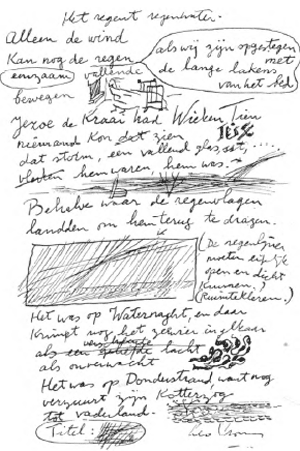 Het regent regenwater.
Alleen de wind
Kan nog de regen
eenzaam vallende
bewegen
als wij zijn opgestegen
met
de lange lakens
van het bed
Jezoe de Kraai had Wieken Tien
niemand kon dat zien
dat storm, een vallend glas, zat, ....
vlerken hem waren, hem was.
Behalve waar de regenvlagen
landden om hem terug te dragen.
(De regenlijnen
moeten eigenlijk
open en dicht
kunnen.)
(Ruimtekleren.)
Het was op Waternaght, en daar
Kruipt nog het gevrier in elkaar
als een geliefde lacht
als onverwacht
Het was op Donderstrand, want nog
verzuurt zijn Kotterzog
tot vaderland.
Titel:
Leo Vroman